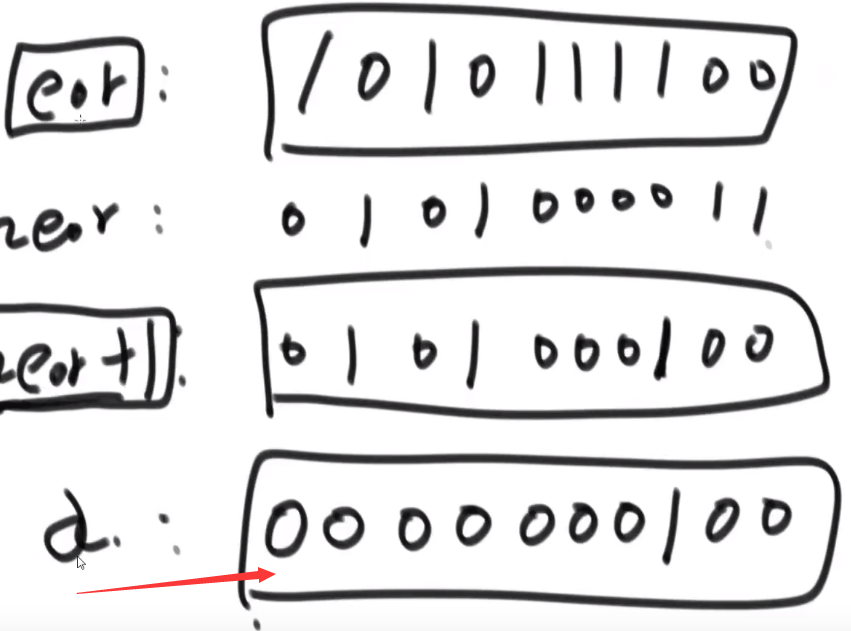 eor: 1 0 1 0 1 1 1 1 0 0
~eor: 0 1 0 1 0 0 0 0 1 1
~eor+1: 0 1 0 1 0 0 0 1 0 0
a: 0 0 0 0 0 0 0 1 0 0